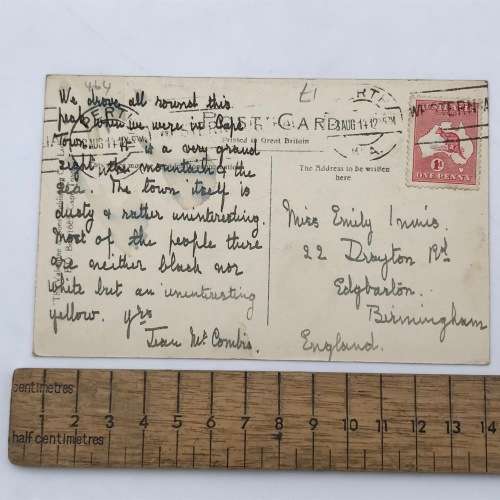 464
£1
We drove all round this
peak when we were in Cape
Town. It is a very grand
sight the mountain & the
sea. The town itself is
dusty & rather uninteresting.
Most of the people there
are neither black nor
white but an uninteresting
yellow. yrs
Jean McCombie.
POST CARD
Printed in Great Britain
The Address to be written
here.
PERTH
AUG 14
WESTERN A
ONE PENNY
Miss Emily Innis.
22 Drayton Rd
Edgbaston.
Birmingham
England.
centimetres
1 2 3 4 5 6 7 8 9 10 11 12 13 14
half centimetres